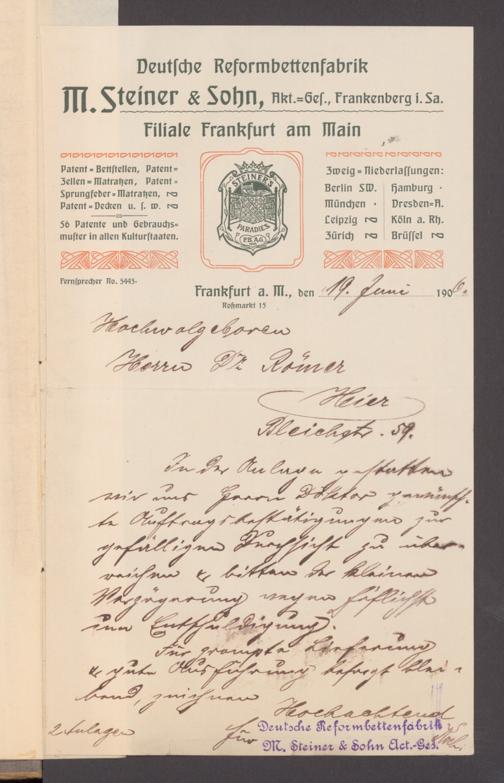 Deutsche Reformbettenfabrik
M. Steiner & Sohn, Akt.=Ges., Frankenberg i. Sa.
Filiale Frankfurt am Main
Patent=Bettstellen, Patent=
Zellen=Matratzen, Patent=
Sprungfeder=Matratzen,
Patent=Decken u. s. w.
56 Patente und Gebrauchs=
muster in allen Kulturstaaten.
STEINER'S
PARADIES
F.B.A.G.
Zweig=Niederlassungen:
Berlin SW. Hamburg
München Dresden=A.
Leipzig Köln a. Rh.
Zürich Brüssel
Fernsprecher No. 5445
Frankfurt a. M., den 19. Juni 1906.
Roßmarkt 15
Hochwolgeboren
Herrn Dr Römer
Hier
Bleichstr. 59.
In der Anlage gestatten
wir uns Herrn Doktor gewünsch-
te Auftragsbestätigungen zur
gefälligen Durchsicht zu über-
reichen & bitten der kleinen
Verzögerung wegen höflichst
um Entschuldigung.
Für prompte Lieferung
& gute Ausführung besorgt blei-
bend, zeichnen
Hochachtend
2 Anlagen
für Deutsche Reformbettenfabrik
M. Steiner & Sohn Act.-Ges.